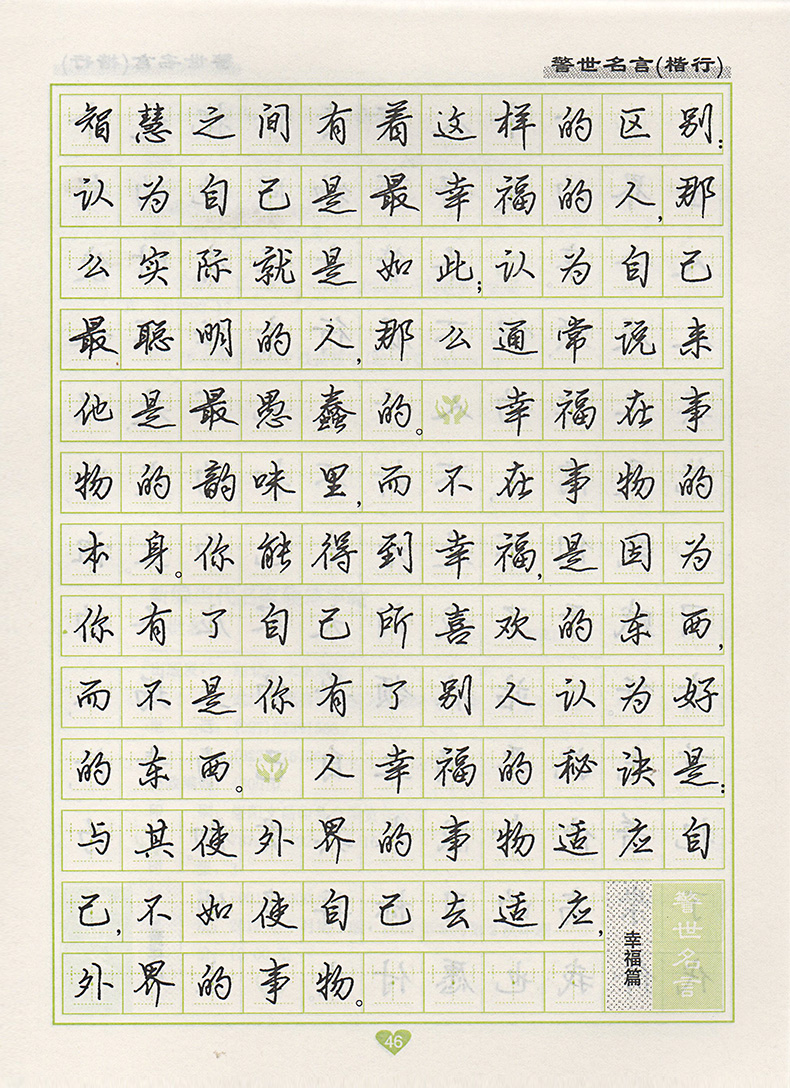 警世名言(楷行)
智慧之间有着这样的区别：
认为自己是最幸福的人，那
么实际就是如此；认为自己
最聪明的人，那么通常说来
他是最愚蠢的。 幸福在事
物的韵味里，而不在事物的
本身。你能得到幸福，是因为
你有了自己所喜欢的东西，
而不是你有了别人认为好
的东西。 人幸福的秘诀是：
与其使外界的事物适应自
己，不如使自己去适应
外界的事物。
幸福篇
警世名言
46